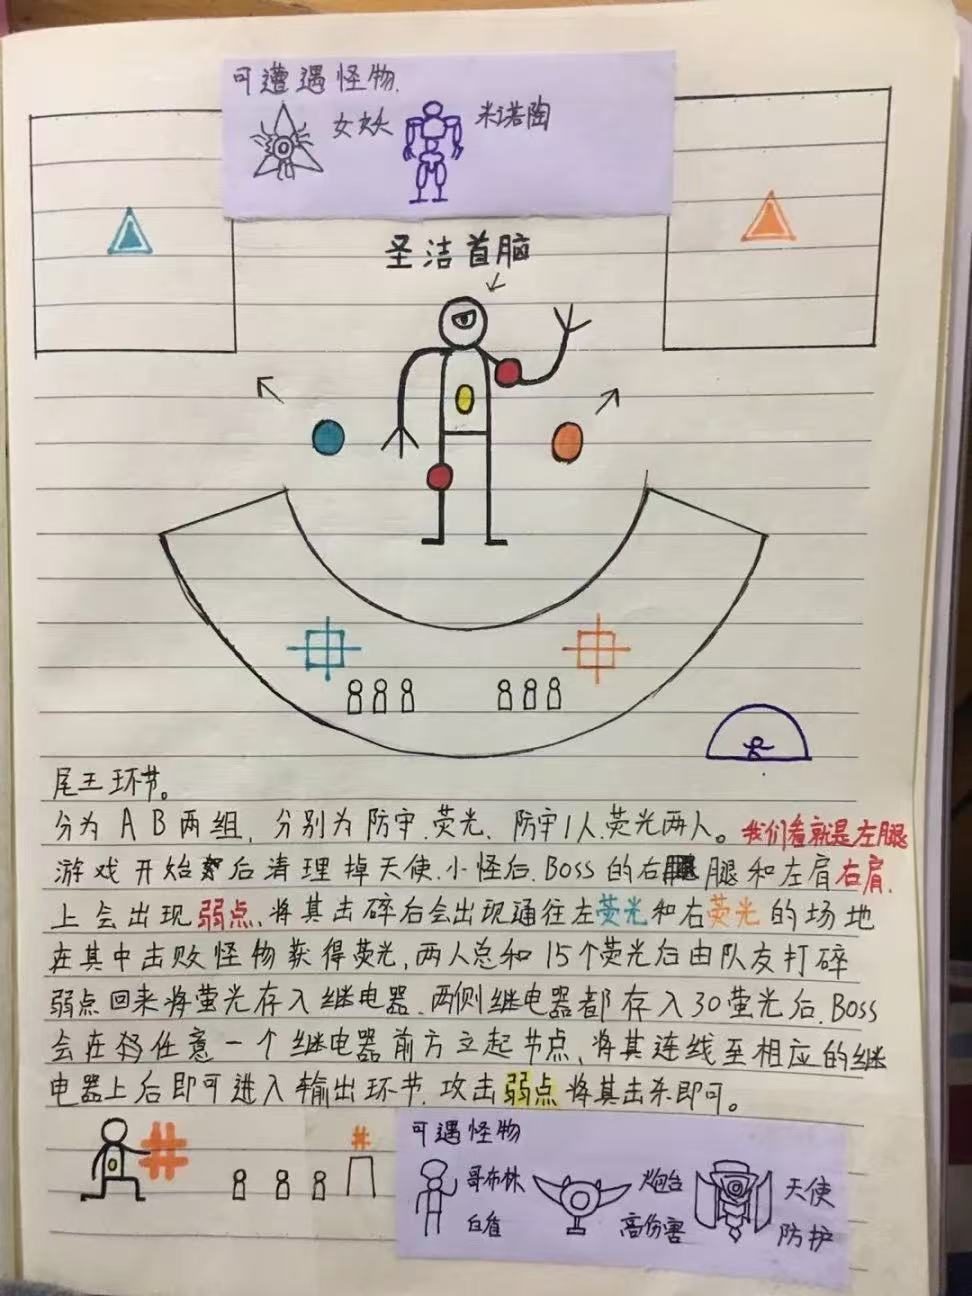 可遭遇怪物.
女妖
米诺陶
圣洁首脑
尾王环节。
分为AB两组,分别为防守.荧光、防守1人.荧光两人。我们看就是左腿
游戏开始后清理掉天使.小怪后.Boss的右腿和左肩右肩.
上会出现弱点.将其击碎后会出现通往左荧光和右荧光的场地
在其中击败怪物获得荧光,两人总和15个荧光后由队友打碎
弱点回来将萤光存入继电器.两侧继电器都存入30萤光后.Boss
会在任意一个继电器前方立起节点,将其连线至相应的继
电器上后即可进入输出环节.攻击弱点将其击杀即可。
#
#
可遇怪物
哥布林
自盾
炮台
高伤害
天使
防护